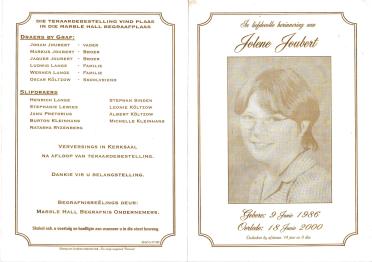 DIE TERAARDEBESTELLING VIND PLAAS
IN DIE MARBLE HALL BEGRAAFPLAAS
DRAERS BY GRAF:
JOHAN JOUBERT - VADER
MARKUS JOUBERT - BROER
JAQUES JOUBERT - BROER
LUDWIG LANGE - FAMILIE
WERNER LANGE - FAMILIE
OSCAR KÖLTZOW - SKOOLVRIEND
SLIPDRAERS
HEINRICH LANGE STEPHAN
STEPHANIE LEWIES LEONIE KÖLTZOW
JANU PRETORIUS ALBERT KÖLTZOW
BURTON KLEINHANS MICHELLE KLEINHANS
NATASHA RYZENBERG
VERVERSINGS IN KERKSAAL
NA AFLOOP VAN TERAARDEBESTELLING.
DANKIE VIR U BELANGSTELLING.
BEGRAFNISREËLINGS DEUR:
MARBLE HALL BEGRAFNIS ONDERNEMERS.
In liefdevolle herinnering aan
Jolene Joubert
Gebore: 9 Junie 1986
Oorlede: 18 Junie 2000
Ouderdom by afsterwe 14 jaar en 9 dae